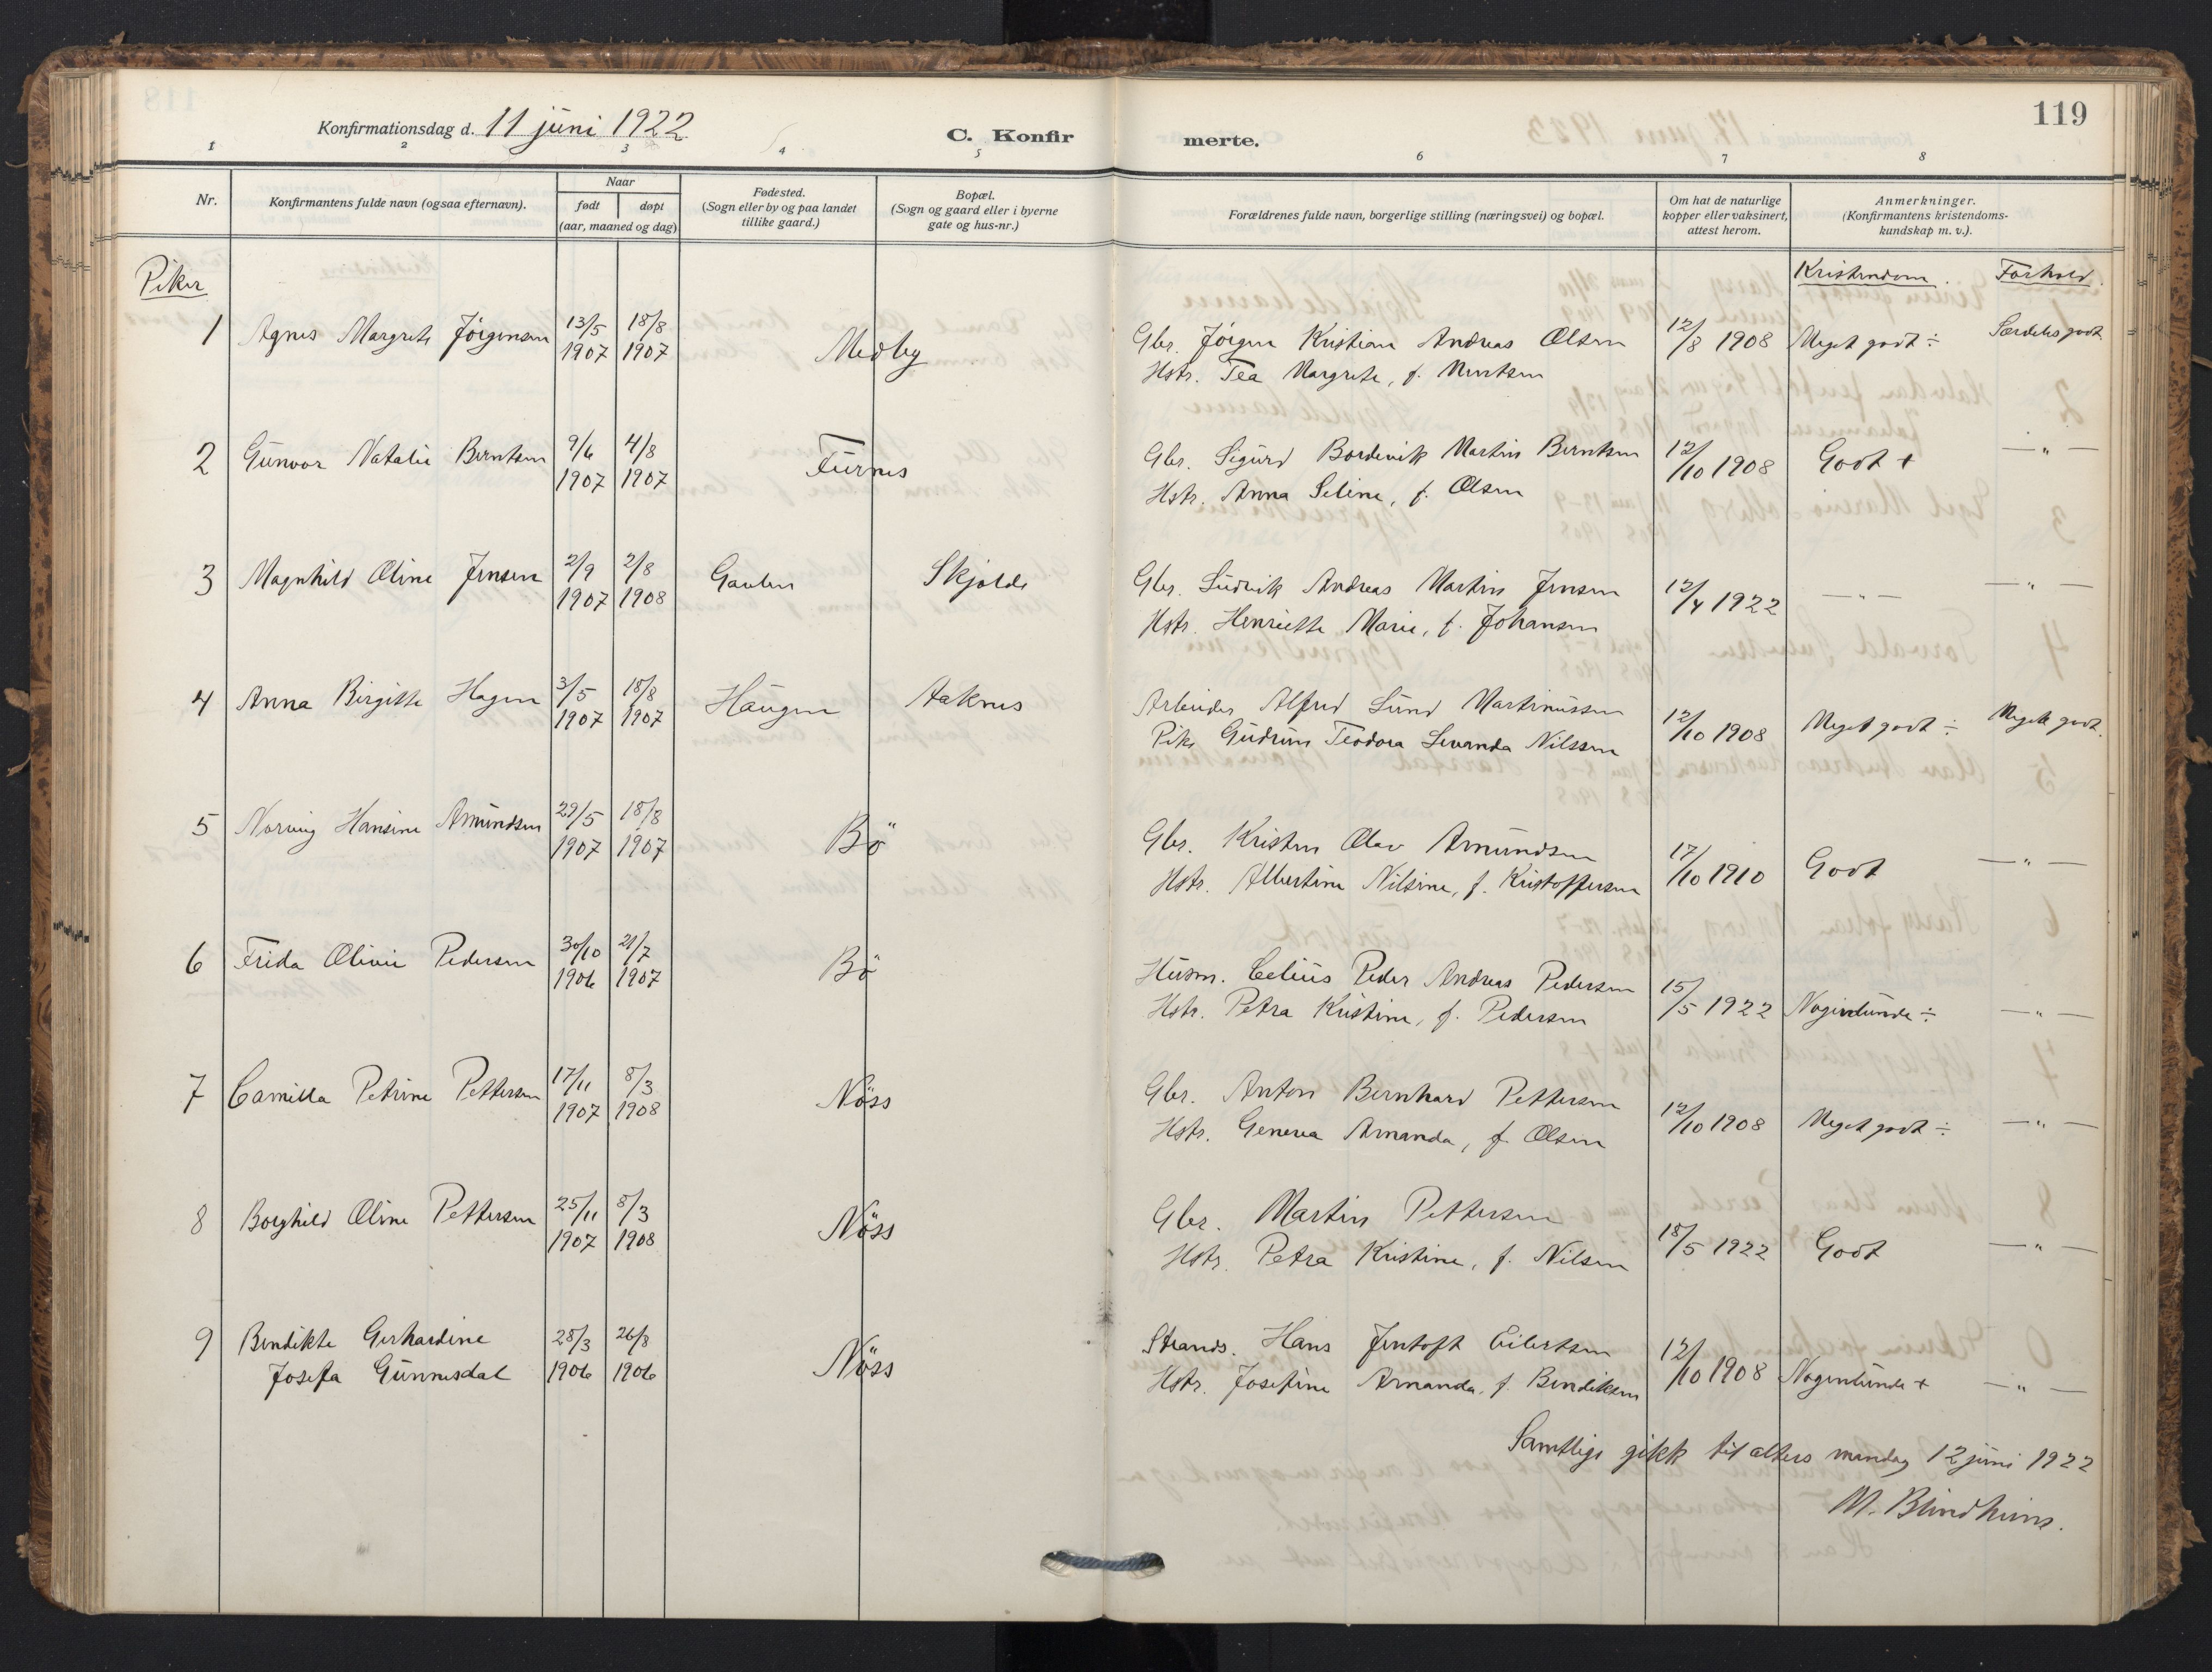 119
Konfirmationsdag d. 11 juni 1922
C. Konfirmerte.
1 2 3 4 5 6 7 8
Nr.
Konfirmantens fulde navn (ogsaa efternavn).
Naar
født døpt
(aar, maaned og dag)
Fødested.
(Sogn eller by og paa landet
tillike gaard.)
Bopæl.
(Sogn og gaard eller i byerne
gate og hus-nr.)
Forældrenes fulde navn, borgerlige stilling (næringsvei) og bopæl.
Om hat de naturlige
kopper eller vaksinert,
attest herom.
Anmerkninger.
(Konfirmantens kristendoms-
kundskap m. v.).
Piker
Kristendom. Forhold.
1 Agnes Margrete Jörgensen 13/5 1907 18/8 1907 Medby
Gbr. Jörgen Kristian Andreas Olsen 12/8 1908 Meget godt ÷ Særdeles godt
Hstr. Tea Margrete, f. Berntsen
2 Gunvor Natalie Berntsen 9/6 1907 4/8 1907 Furnes
Gbr. Sigurd Bordevik Martin Berntsen 12/10 1908 Godt + — " —
Hstr. Anna Seline, f. Olsen
3 Magnhild Oline Jensen 2/9 1907 2/8 1908 Gauten Skjolde
Gbr. Ludvik Andreas Martin Jensen 12/4 1922 — " — — " —
Hstr. Henriette Marie, f. Johansen
4 Anna Birgitte Hagen 3/5 1907 18/8 1907 Haugen Aaknes
Arbeider Alfred Lund Martinussen 12/10 1908 Meget godt ÷ Meget godt.
Pike Gudrun Teodora Levanda Nilssen
5 Norveig Hansine Amundsen 29/5 1907 18/8 1907 Bö
Gbr. Kristen Olav Amundsen 17/10 1910 Godt — " —
Hstr. Albertine Nilsine, f. Kristoffersen
6 Frida Olivie Pedersen 30/10 1906 21/7 1907 Bö
Husm. Celius Peder Andreas Pedersen 15/5 1922 Nogenlunde ÷ — " —
Hstr. Petra Kristine, f. Pedersen
7 Camilla Petrine Pettersen 17/11 1907 8/3 1908 Nöss
Gbr. Anton Bernhard Pettersen 12/10 1908 Meget godt ÷ — " —
Hstr. Geneva Amanda, f. Olsen
8 Borghild Oline Pettersen 25/11 1907 8/3 1908 Nöss
Gbr. Martin Pettersen 18/5 1922 Godt — " —
Hstr. Petra Kristine, f. Nilsen
9 Bendikte Gerhardine 28/3 1906 26/8 1906 Nöss
Josefa Gunnesdal
Strands. Hans Jentoft Eilertsen 12/10 1908 Nogenlunde + — " —
Hstr. Josefine Amanda, f. Bendiksen
Samtlige gikk til alters mandag 12 juni 1922
M. Blindheim.